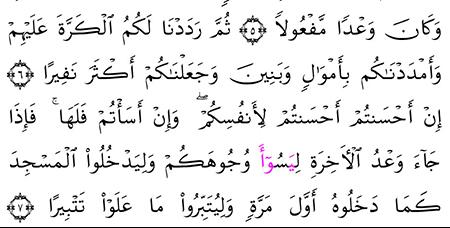 وَكَانَ وَعْدًا مَّفْعُولًا ۝٥ ثُمَّ رَدَدْنَا لَكُمُ ٱلْكَرَّةَ عَلَيْهِمْ
وَأَمْدَدْنَٰكُم بِأَمْوَٰلٍ وَبَنِينَ وَجَعَلْنَٰكُمْ أَكْثَرَ نَفِيرًا ۝٦
إِنْ أَحْسَنتُمْ أَحْسَنتُمْ لِأَنفُسِكُمْ ۖ وَإِنْ أَسَأْتُمْ فَلَهَا ۚ فَإِذَا
جَآءَ وَعْدُ ٱلْأَخِرَةِ لِيَسُوٓأَ وُجُوهَكُمْ وَلِيَدْخُلُوا۟ ٱلْمَسْجِدَ
كَمَا دَخَلُوهُ أَوَّلَ مَرَّةٍ وَلِيُتَبِّرُوا۟ مَا عَلَوْا۟ تَتْبِيرًا ۝٧